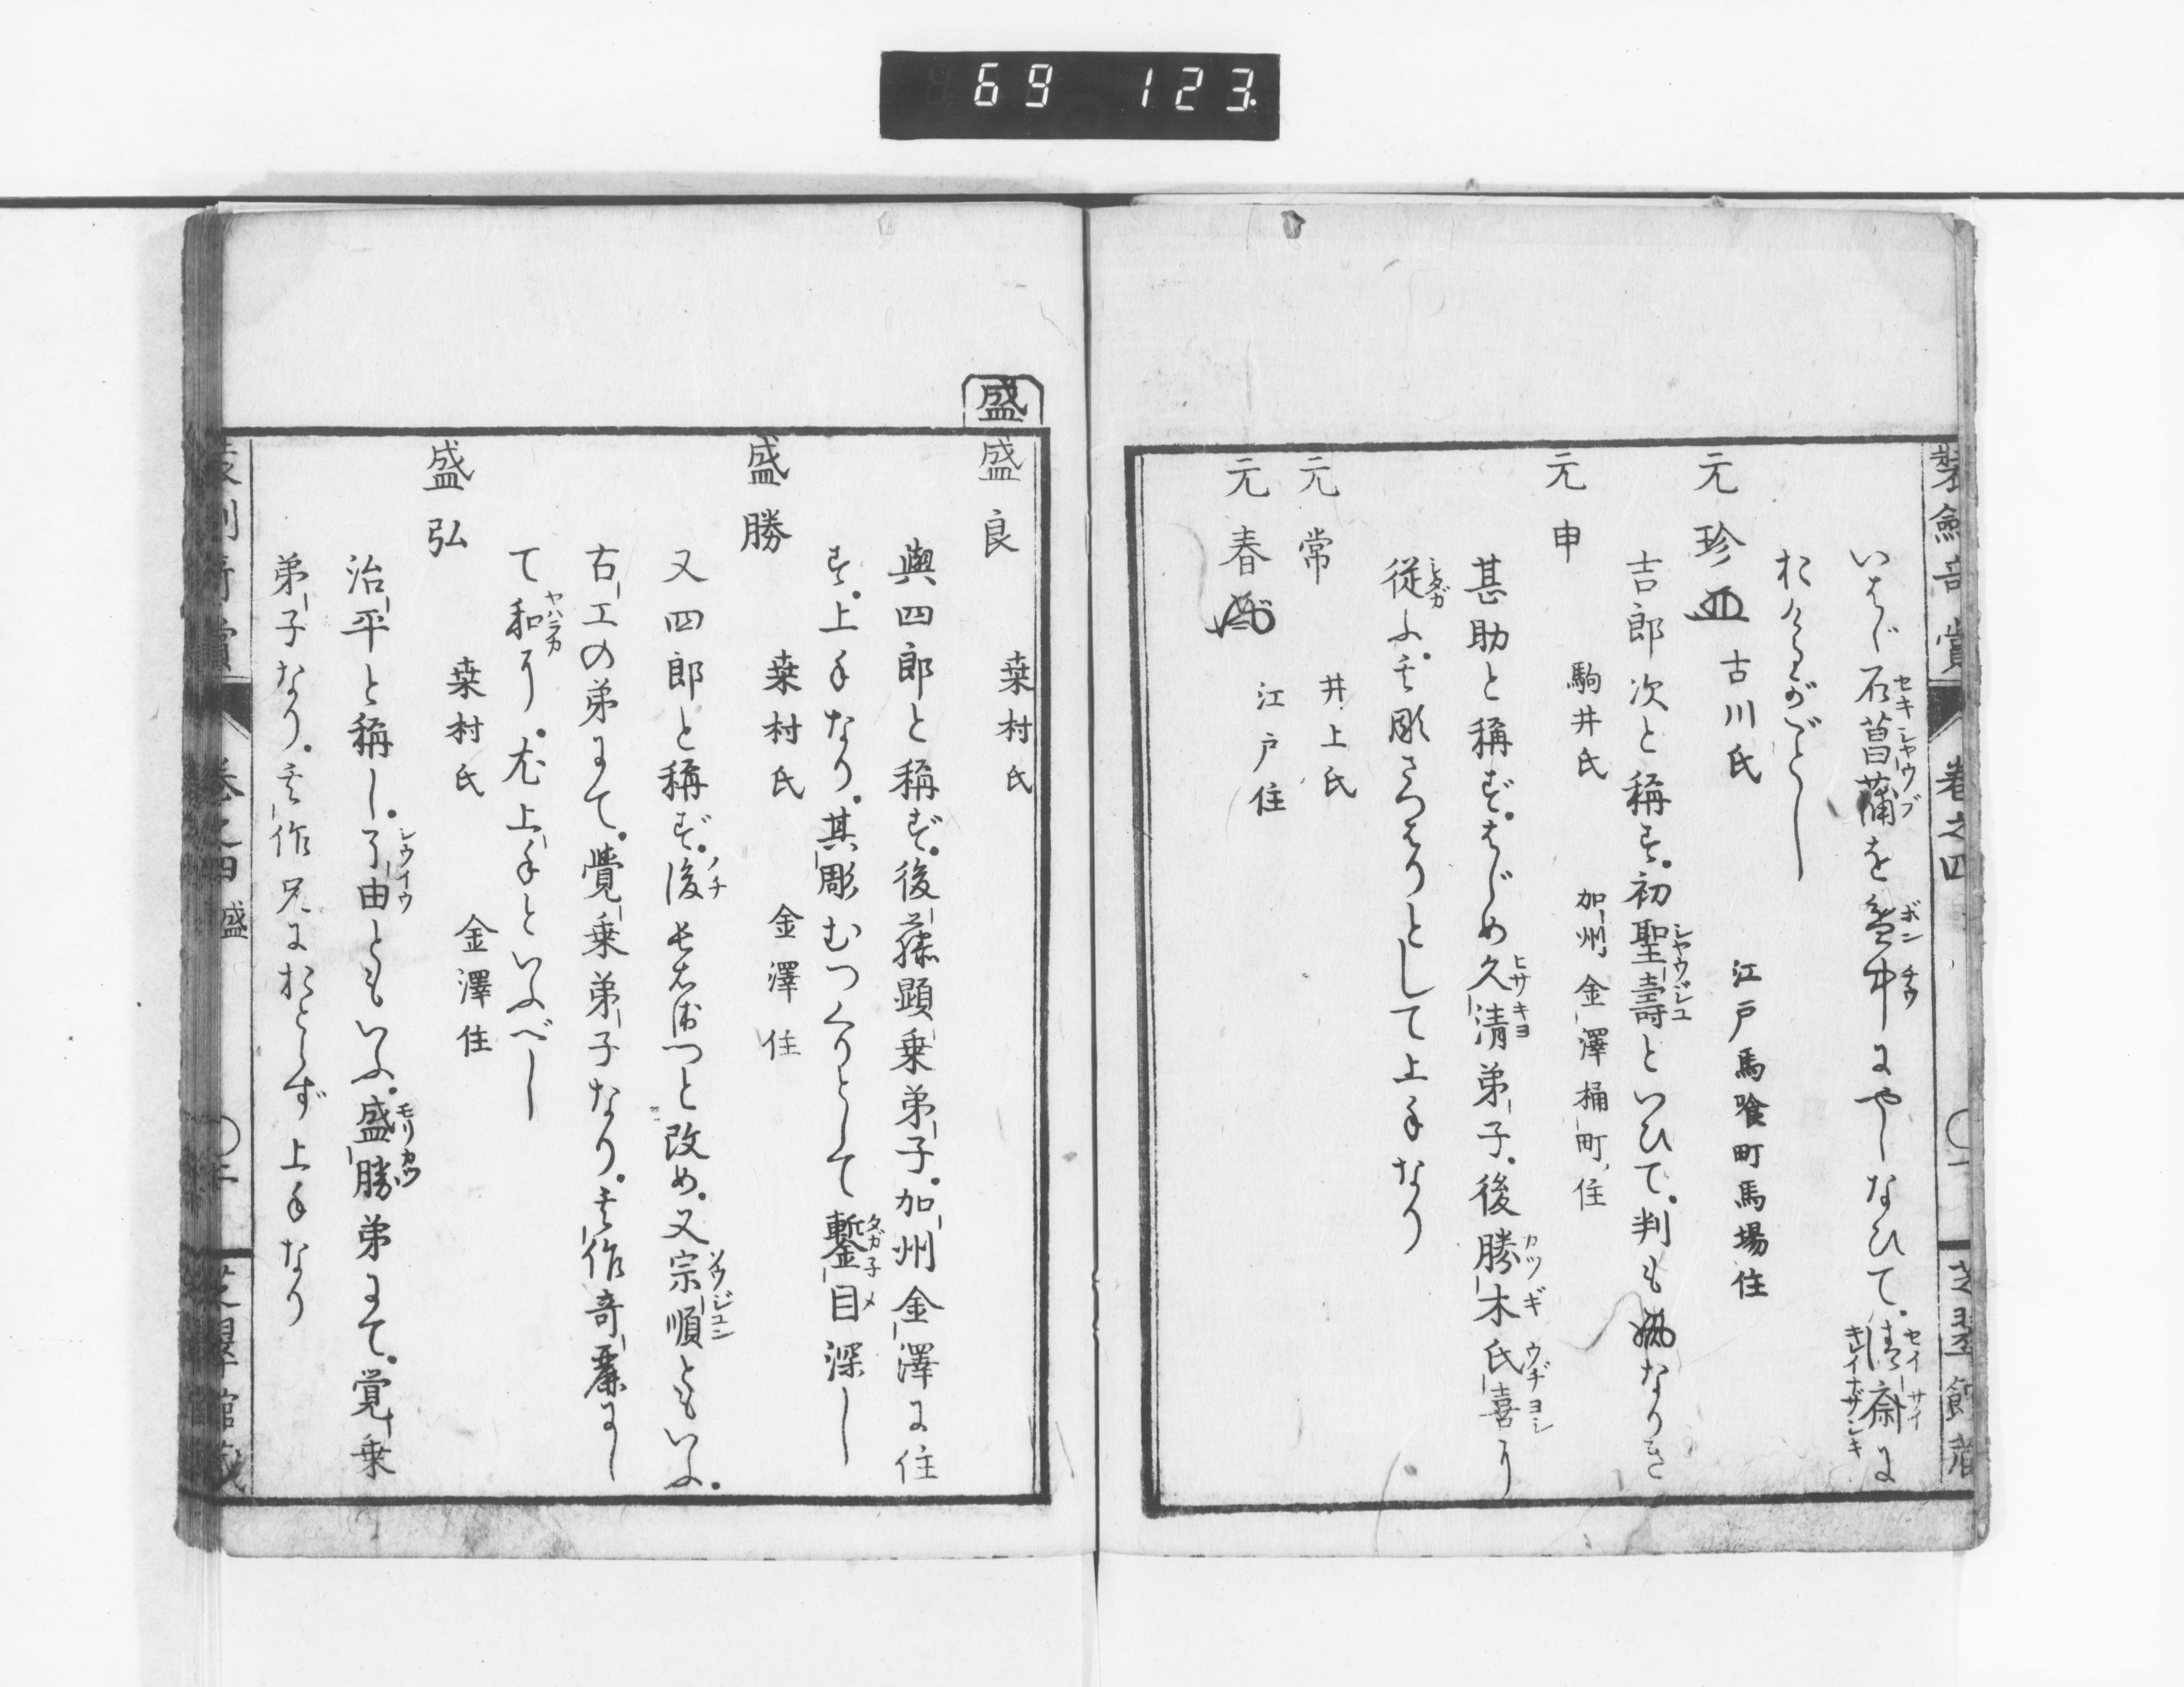 69 123.
装劔奇賞 巻之四
いはゞ石菖蒲を盆中にやしなひて。清斎に
おけるがごとし
元珍 古川氏 江戸馬喰町馬場住
吉郎次と称す。初聖壽といひて。判もなりき
元申 駒井氏 加州金澤桶町住
甚助と稱ず。はじめ久清弟子。後勝木氏喜り
従ふ。其彫さつはりとして上手なり
元常 井上氏
元春 江戸住
盛
盛良 桒村氏
與四郎と稱ず。後藤顕乗弟子。加州金澤に住
す。上手なり。其彫むつくりとして鏨目深し
盛勝 桒村氏 金澤住
又四郎と稱ず。後と改め。又宗順ともいふ。
右工の弟にて。覺乗弟子なり。其作奇麗にし
て和り。尤上手といふべし
盛弘 桒村氏 金澤住
治平と稱し。了由ともいふ。盛勝弟にて。覚乗
弟子なり。其作兄におとらず上手なり
巻之四 盛